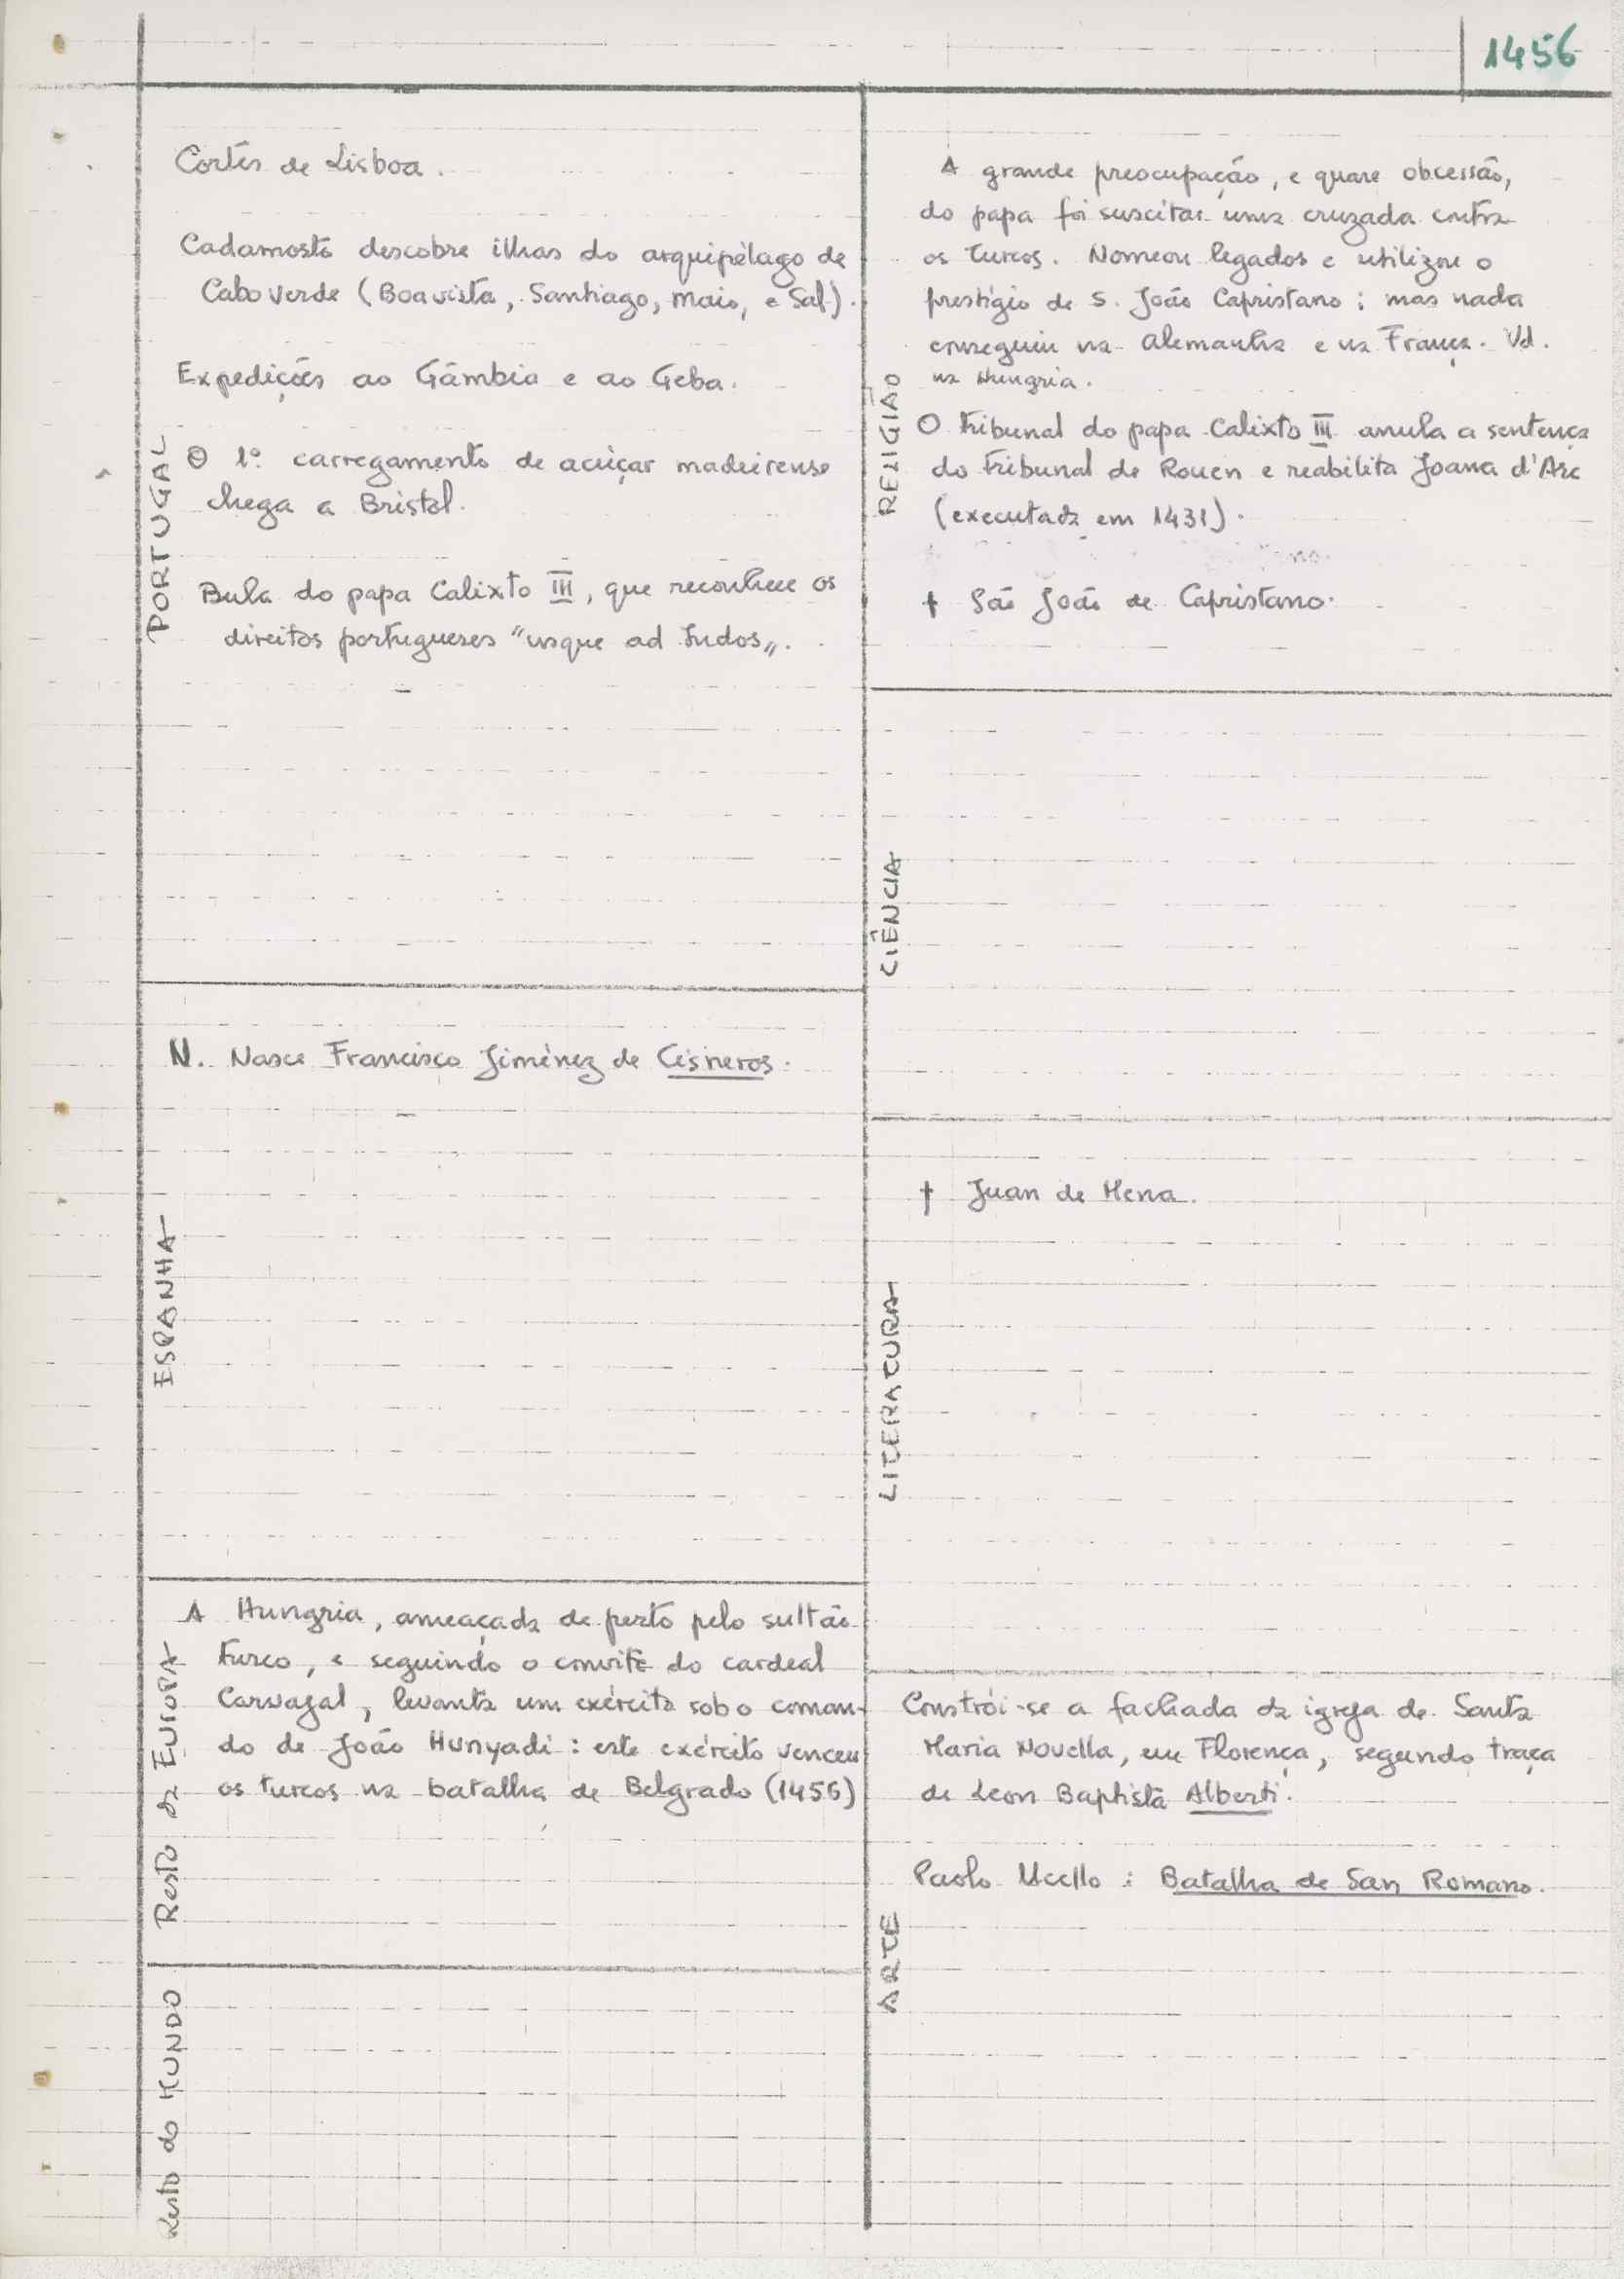 1456
PORTUGAL
Cortes de Lisboa.
Cadamosto descobre ilhas do arquipélago de
Cabo Verde (Boavista, Santiago, Maio, e Sal).
Expedições ao Gâmbia e ao Geba.
O 1º carregamento de açúcar madeirense
chega a Bristol.
Bula do papa Calixto III, que reconhece os
direitos portugueses "usque ad Indos".
ESPANHA
N. Nasce Francisco Jiménez de Cisneros.
Resto da EUROPA
A Hungria, ameaçada de perto pelo sultão
turco, e seguindo o convite do cardeal
Carvajal, levanta um exército sob o coman-
do de João Hunyadi: este exército venceu
os turcos na batalha de Belgrado (1456)
Resto do MUNDO
RELIGIÃO
A grande preocupação, e quase obcessão,
do papa foi suscitar uma cruzada contra
os turcos. Nomeou legados e utilizou o
prestígio de S. João Capristano; mas nada
conseguiu na Alemanha e na França. Vd.
na Hungria.
O tribunal do papa Calixto III anula a sentença
do tribunal de Rouen e reabilita Joana d'Arc
(executada em 1431).
† São João de Capristano.
CIÊNCIA
LITERATURA
† Juan de Mena.
ARTE
Constrói-se a fachada da igreja de Santa
Maria Novella, em Florença, segundo traça
de Leon Baptista Alberti.
Paolo Ucello: Batalha de San Romano.